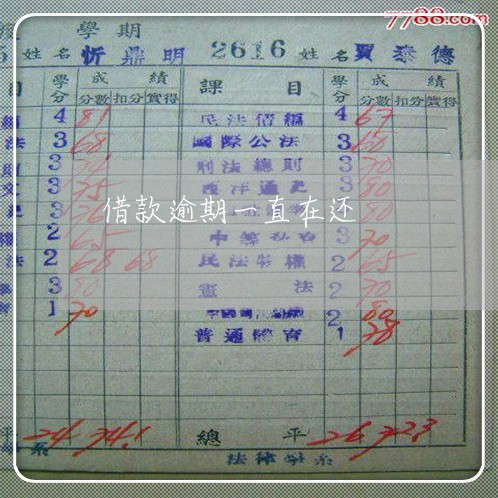 7788.com
學期
姓名忻鼎明 2616 姓名賈泰德
目 學分 成績 課目 學分 成績
分數 扣分 實得 分數 扣分 實得
4 81 民法債編 4 67
法 3 68 國際公法 3 60
3 刑法總則 3 70
3 75 西洋通史 3 80
3 3 80
借款逾期一直在还
2 65 3 70
法 2 68 68 民法物權 2 65
3 80 憲法 2 70
1 70 2 80
普通體育 1 78
平 24 74.1 總平 26 72.3
系 法律學系